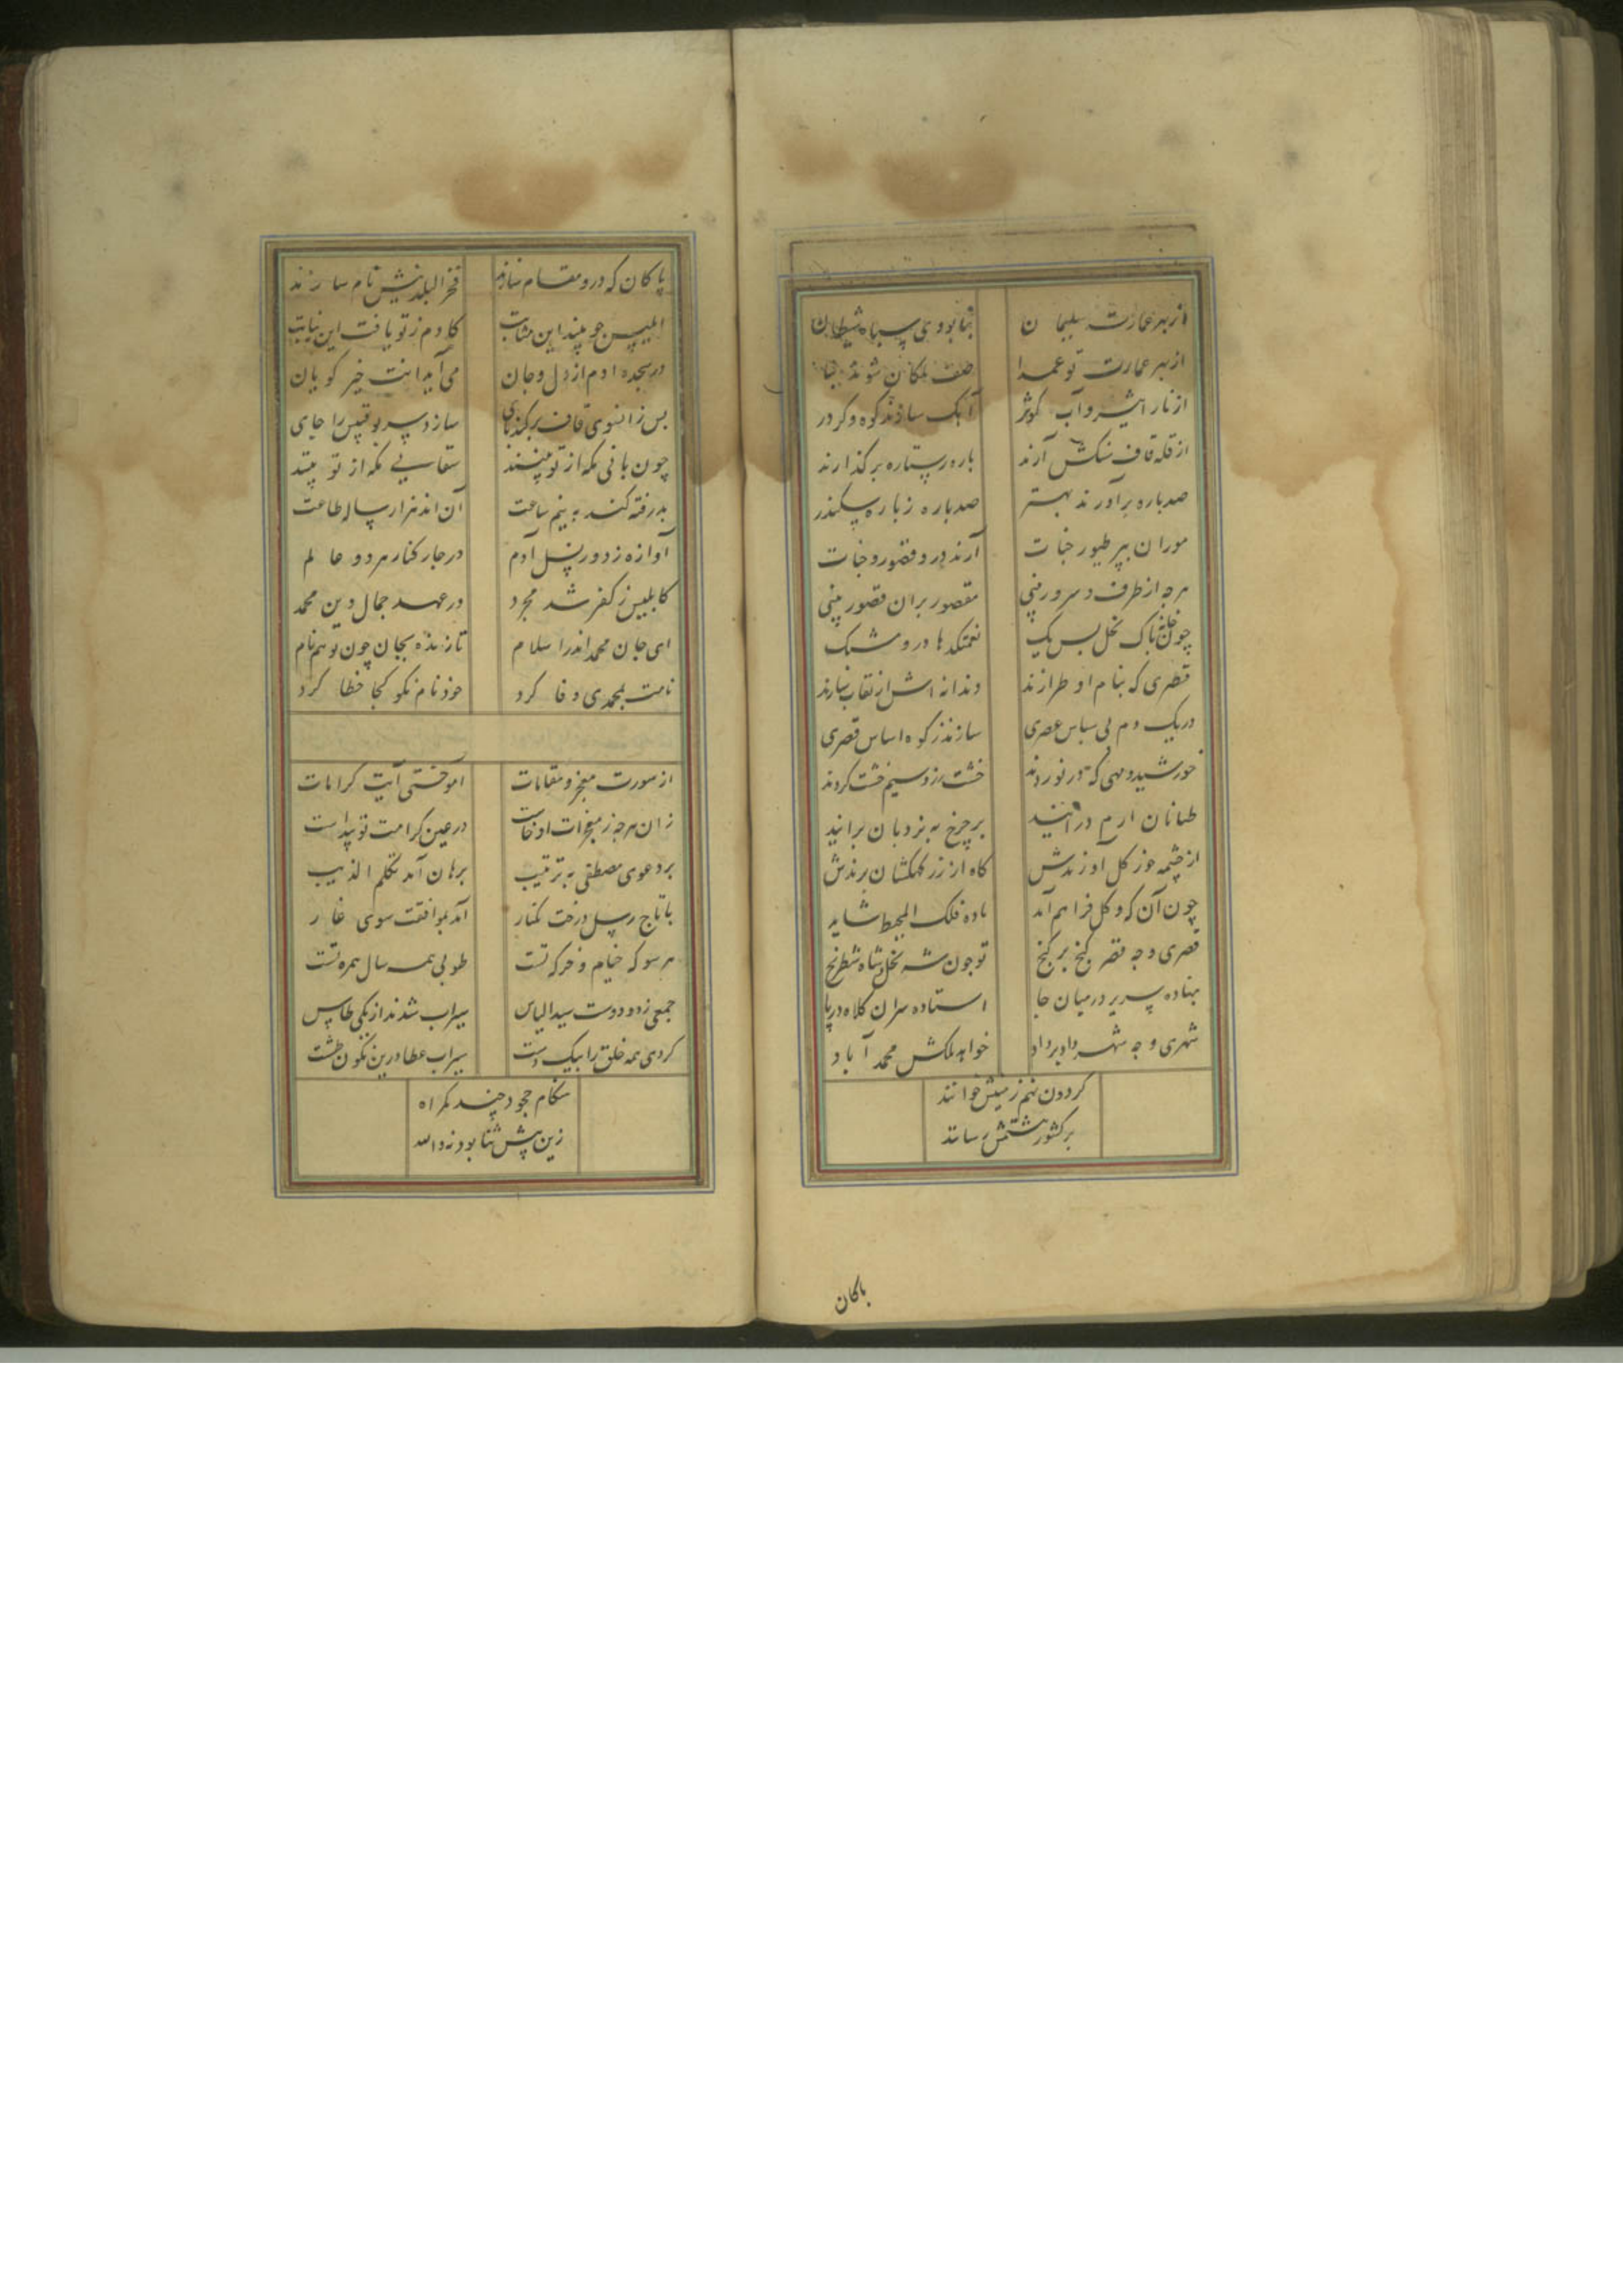 از بهر عمارت سلیمان بنا بودی سپاه شیطان
از بهر عمارت تو عمدا صف ملکان شوند بنا
از نار اثیر و آب کوثر آهک سازند کوه و کردر
از قله قاف سنکش آرند باره بستاره بر کذارند
صد باره برآورند بهتر صد باره ز باره سکندر
موران بپر طیور جنات آرند درو قصور و جنات
هرچه از طرف و سرور بینی مقصور بران قصور بینی
چون خانه پاک نحل بس یک نعمتکدها درو مشبک
قطری که بنام او طرازند دندانه اش از نقاب سازند
در یک دم بی سپاس عصری سازند ز کوه اساس قصری
خورشید و مهی که در نوردند خشت زر و سیم خشت کردند
طیانان ارم درآیند بر چرخ به نردبان برآیند
از چشمه خور کل آورندش کاه از زر کهکشان برندش
چون آن که و کل فراهم آمد باده فلک المحیط شاید
قصری و چه قصر کنج بر کنج تو چون شه نحل و شاه شطرنج
بنهاده سریر در میان جا استاده سران کلاه در پا
شهری و چه شهر داد بر داد خواند ملکش محمد آباد
کردون نهم زمینش خوانند
بر کشور هشتمش رسانند
پاکان
پاکان که درو مقام سازند فخر البلدینش نام سازند
ابلیس چو بیند این مثابت کادم ز تو یافت این نیابت
در سجده ادم از دل و جان می آید انت خیر کویان
بس زانسوی قاف برکند پای سازد پس بوقبیس را جای
چون بانی مکه از تو بینند سقایی مکه از تو بینند
بدرفته کند به نیم ساعت آن اند هزار ساله طاعت
آوازه زد در نسل آدم در چار کنار هر دو عالم
کابلیس ز کفر شد مجرد در عهد جمال دین محمد
ای جان محمد اندر اسلام تا زنده بجان چون تو هم نام
نامت بمحمدی وفا کرد خود نام نکو کجا خطا کرد
از سورت معجز و مقامات آموختی آیت کرامات
زان هرچه ز معجزات او خاست در عین کرامت تو پیداست
بر دعوی مصطفی به ترتیب برهان آمد تکلم الذیب
با تاج رسل درخت یکبار آمد بموافقت سوی غار
هر سو که خیام و خرکه تست طوبی همه سال همره تست
جمعی ز دو دست سید الناس سیراب شدند از یکی طاس
کردی همه خلق را بیک دست سیراب عطا درین نکون طشت
هنکام جحود چند کمراه
زین پیش ثنا بود نه والله